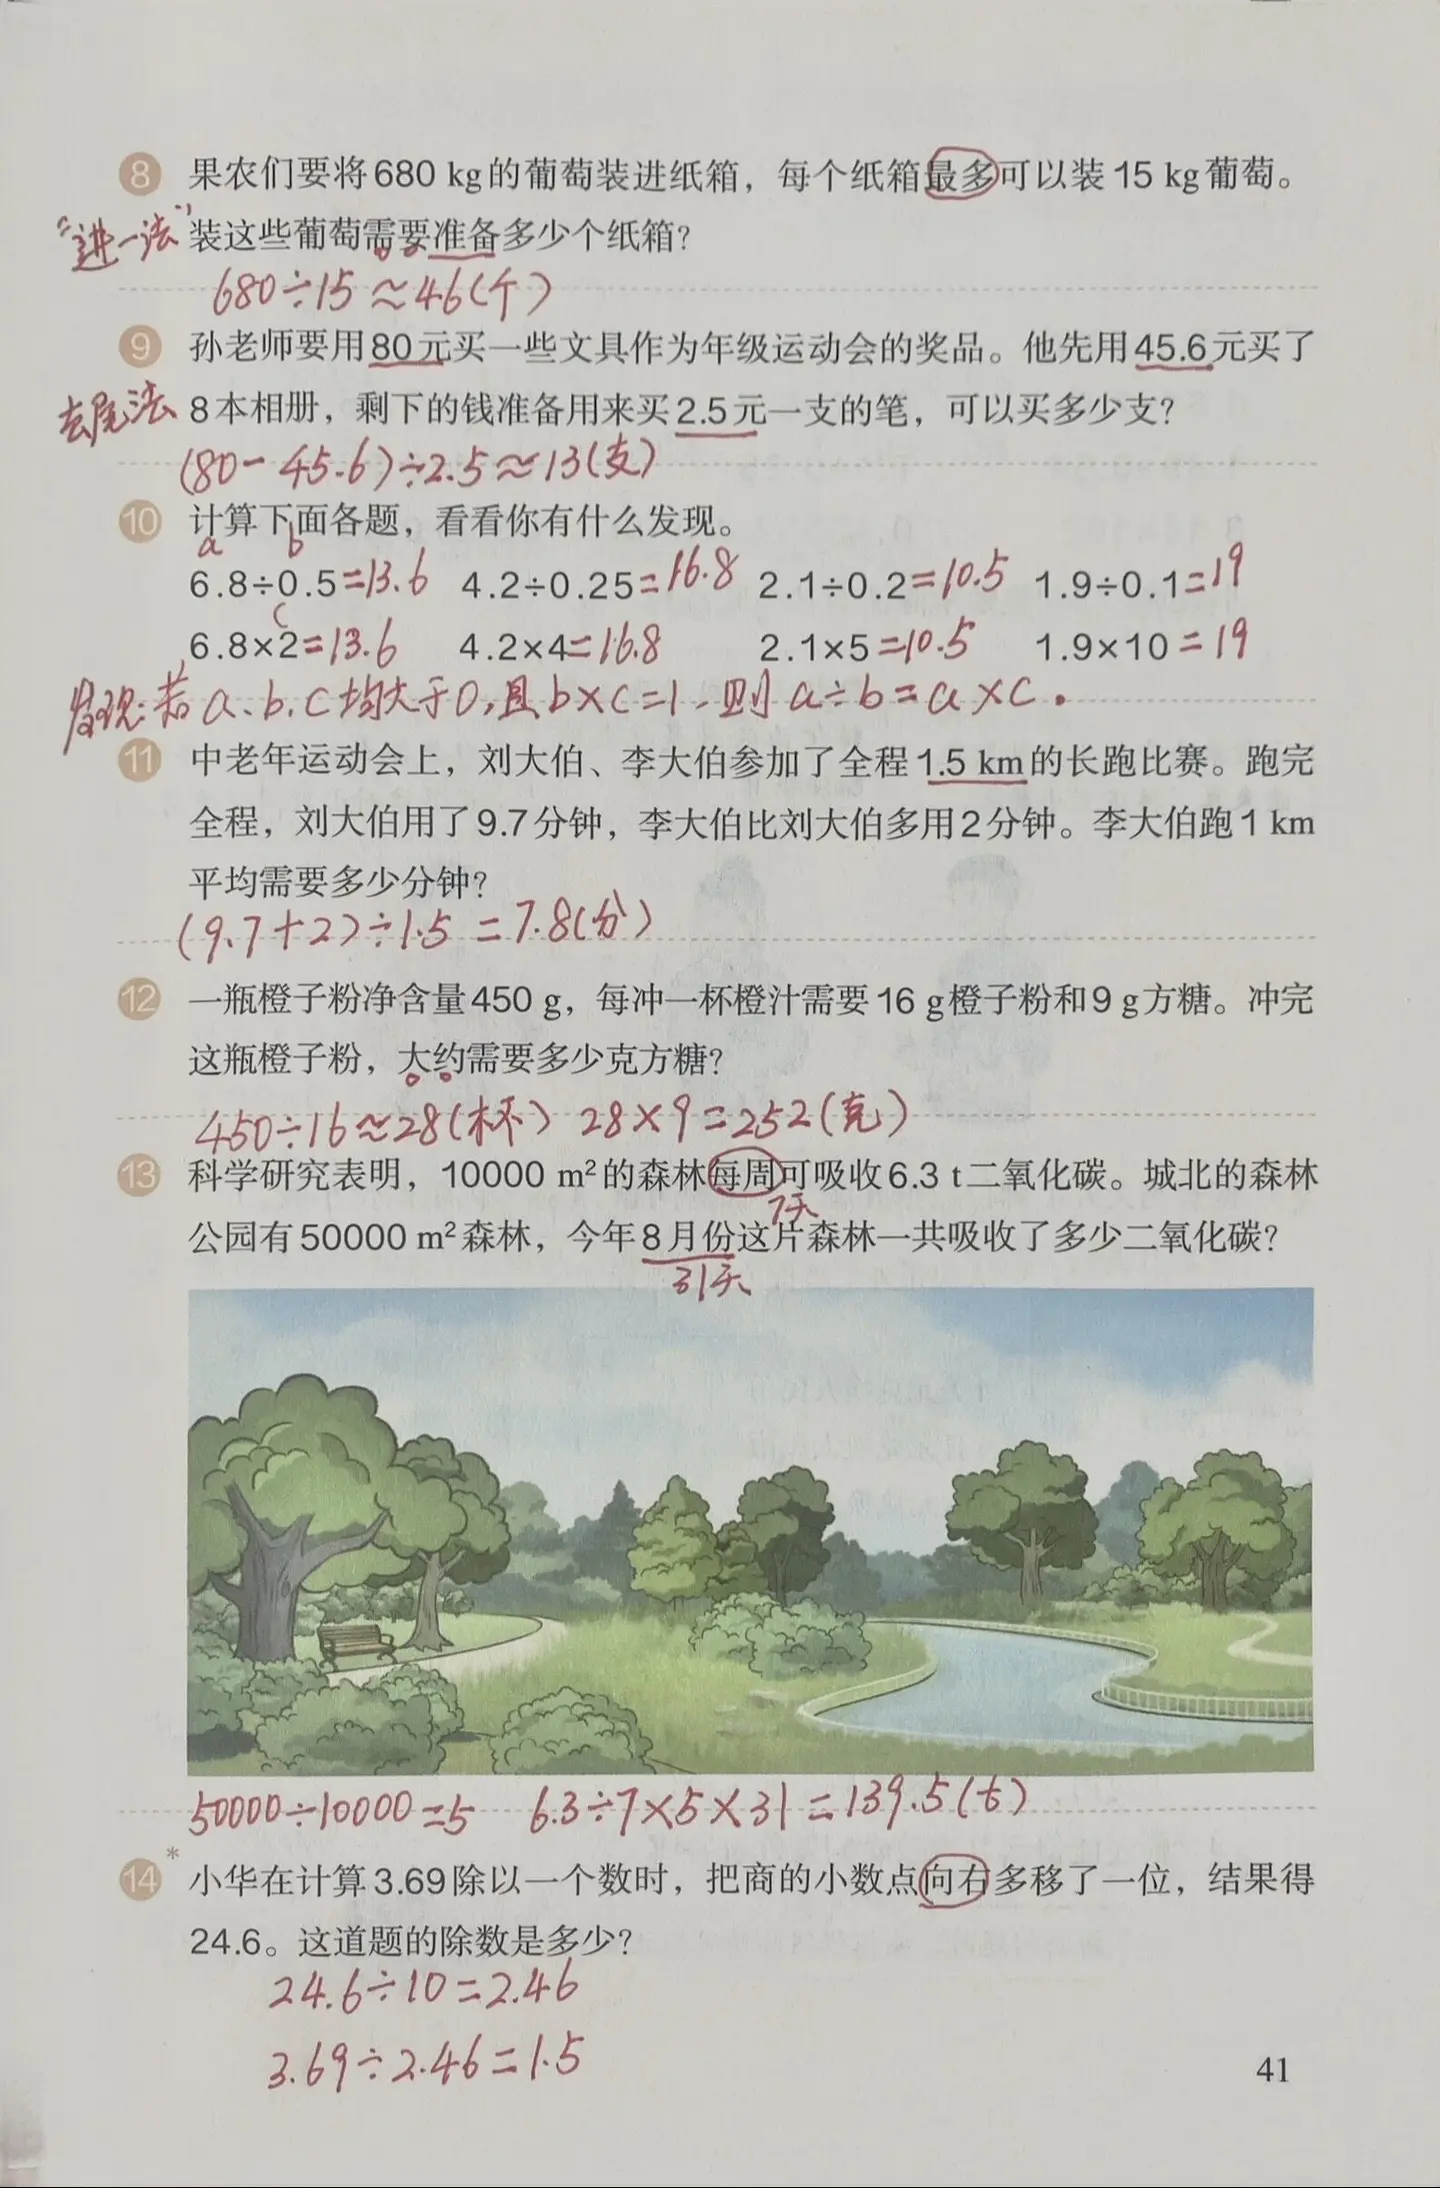 8 果农们要将680 kg的葡萄装进纸箱，每个纸箱最多可以装15 kg葡萄。
"进一法" 装这些葡萄需要准备多少个纸箱？
680÷15≈46(个)
9 孙老师要用80元买一些文具作为年级运动会的奖品。他先用45.6元买了
去尾法 8本相册，剩下的钱准备用来买2.5元一支的笔，可以买多少支？
(80-45.6)÷2.5≈13(支)
10 计算下面各题，看看你有什么发现。
a b
6.8÷0.5=13.6 4.2÷0.25=16.8 2.1÷0.2=10.5 1.9÷0.1=19
c
6.8×2=13.6 4.2×4=16.8 2.1×5=10.5 1.9×10=19
发现:若a、b、c均大于0,且b×c=1,则a÷b=a×c.
11 中老年运动会上，刘大伯、李大伯参加了全程1.5 km的长跑比赛。跑完
全程，刘大伯用了9.7分钟，李大伯比刘大伯多用2分钟。李大伯跑1 km
平均需要多少分钟？
(9.7+2)÷1.5=7.8(分)
12 一瓶橙子粉净含量450 g，每冲一杯橙汁需要16 g橙子粉和9 g方糖。冲完
这瓶橙子粉，大约需要多少克方糖？
450÷16≈28(杯) 28×9=252(克)
13 科学研究表明，10000 m²的森林每周可吸收6.3 t二氧化碳。城北的森林
7天
公园有50000 m²森林，今年8月份这片森林一共吸收了多少二氧化碳？
31天
50000÷10000=5 6.3÷7×5×31=139.5(t)
14* 小华在计算3.69除以一个数时，把商的小数点向右多移了一位，结果得
24.6。这道题的除数是多少？
24.6÷10=2.46
3.69÷2.46=1.5
41